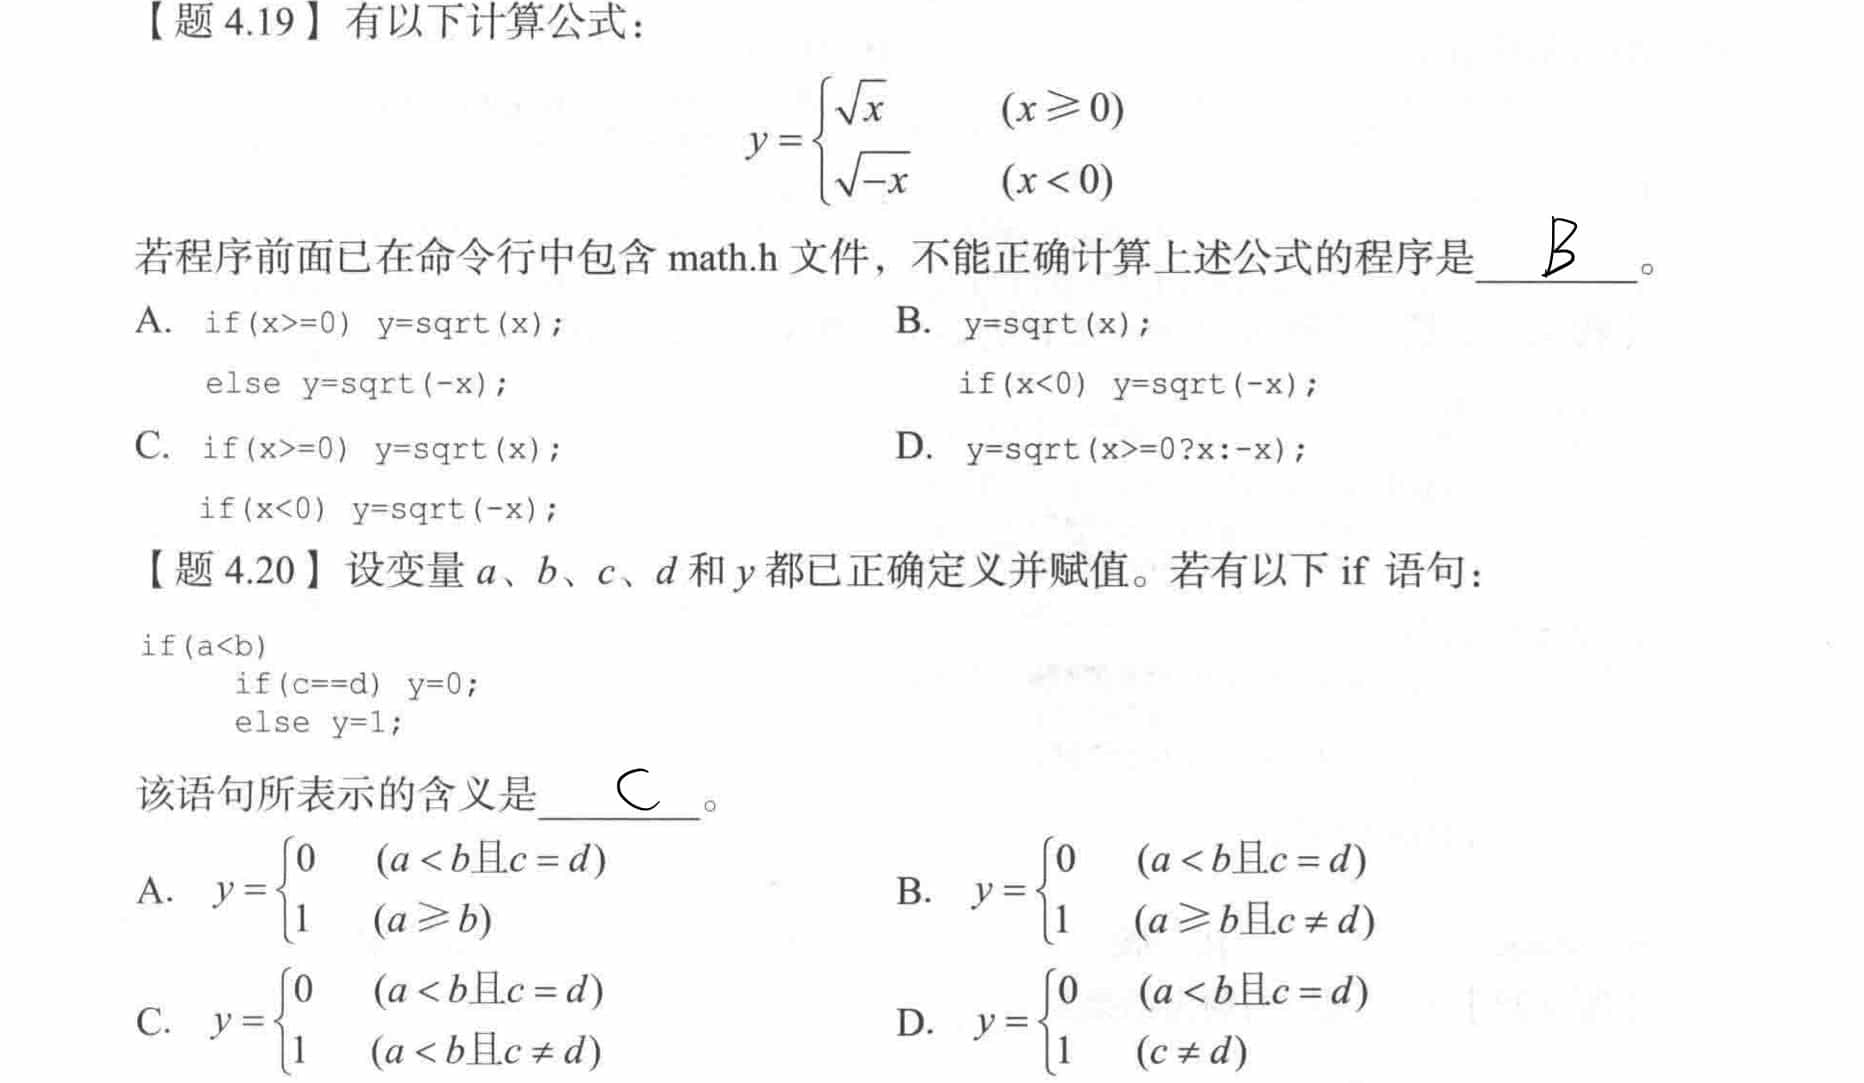 【题 4.19】有以下计算公式：
y = { √x (x ⩾ 0)
√−x (x < 0)
若程序前面已在命令行中包含 math.h 文件，不能正确计算上述公式的程序是 B 。
A. if(x>=0) y=sqrt(x); B. y=sqrt(x);
else y=sqrt(-x); if(x<0) y=sqrt(-x);
C. if(x>=0) y=sqrt(x); D. y=sqrt(x>=0?x:-x);
if(x<0) y=sqrt(-x);
【题 4.20】设变量 a、b、c、d 和 y 都已正确定义并赋值。若有以下 if 语句：
if(a<b)
if(c==d) y=0;
else y=1;
该语句所表示的含义是 C 。
A. y = { 0 (a < b且c = d) B. y = { 0 (a < b且c = d)
1 (a ⩾ b) 1 (a ⩾ b且c ≠ d)
C. y = { 0 (a < b且c = d) D. y = { 0 (a < b且c = d)
1 (a < b且c ≠ d) 1 (c ≠ d)